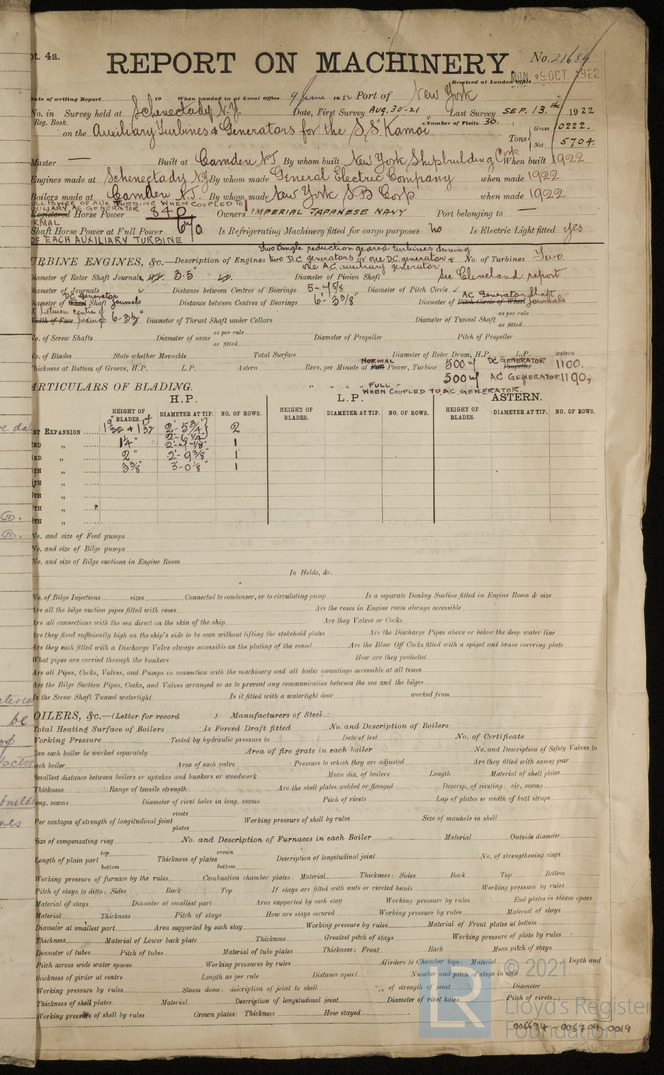 pt. 4a.
REPORT ON MACHINERY
No. 21684
Received at London Office
MON. 9 OCT. 1922
Date of writing Report 19 When handed in at Local Office 9 June 1922 Port of New York
No. in Survey held at Schenectady N.Y. Date, First Survey Aug. 30-21 Last Survey SEP. 13th 1922
Reg. Book. (Number of Visits 30.
on the Auxiliary Turbines & Generators for the S.S. "Kamoi"
Gross
Tons
Net 5704
Master — Built at Camden N.J. By whom built New York Shipbuilding Corp. When built 1922
Engines made at Schenectady N.Y. By whom made General Electric Company when made 1922
Boilers made at Camden N.J. By whom made New York S.B. Corp when made 1922
FULL POWER OF AUX TURBINE WHEN COUPLED TO
AUXILIARY AC GENERATOR
Registered Horse Power 840 Owners IMPERIAL JAPANESE NAVY Port belonging to —
Shaft Horse Power at Full Power 670 Is Refrigerating Machinery fitted for cargo purposes No Is Electric Light fitted yes
OF EACH AUXILIARY TURBINE
TURBINE ENGINES, &c.—Description of Engines Two single reduction geared turbines driving two D.C. generators or one D.C. generator & one AC auxiliary generator No. of Turbines Two
Diameter of Rotor Shaft Journals, H.P. 3.5" L.P. Diameter of Pinion Shaft See Cleveland report
Diameter of Journals Distance between Centres of Bearings 5-4⅝ Diameter of Pitch Circle
DC Generator
AC Generator Shaft
Diameter of Wheel Shaft Journals Distance between Centres of Bearings 6-3⅜" Diameter of Pitch Circle of Wheel Journals
Width of Face Diameter of Thrust Shaft under Collars Diameter of Tunnel Shaft as per rule
as fitted
No. of Screw Shafts Diameter of same as per rule
as fitted
Diameter of Propeller Pitch of Propeller
No. of Blades State whether Moveable Total Surface Diameter of Rotor Drum, H.P. L.P. astern
Thickness at Bottom of Groove, H.P. L.P. Astern Revs. per Minute at NORMAL Power, Turbine 5004 DC GENERATOR 1100.
" " " FULL " " 5004 AC GENERATOR 1190,
WHEN COUPLED TO AC GENERATOR
PARTICULARS OF BLADING.
H.P. L.P. ASTERN.
HEIGHT OF BLADES. DIAMETER AT TIP. NO. OF ROWS. HEIGHT OF BLADES. DIAMETER AT TIP. NO. OF ROWS. HEIGHT OF BLADES. DIAMETER AT TIP. NO. OF ROWS.
1ST EXPANSION 2
2ND " 1¼" 1
3RD " 2" 2'-9⅜" 1
4TH " 3⅜" 3-0⅛" 1
5TH "
6TH "
7TH "
8TH "
No. and size of Feed pumps
No. and size of Bilge pumps
No. and size of Bilge suctions in Engine Room
In Holds, &c.
No. of Bilge Injections sizes Connected to condenser, or to circulating pump Is a separate Donkey Suction fitted in Engine Room & size
Are all the bilge suction pipes fitted with roses Are the roses in Engine room always accessible
Are all connections with the sea direct on the skin of the ship Are they Valves or Cocks
Are they fixed sufficiently high on the ship's side to be seen without lifting the stokehold plates Are the Discharge Pipes above or below the deep water line
Are they each fitted with a Discharge Valve always accessible on the plating of the vessel Are the Blow Off Cocks fitted with a spigot and brass covering plate
What pipes are carried through the bunkers How are they protected
Are all Pipes, Cocks, Valves, and Pumps in connection with the machinery and all boiler mountings accessible at all times
Are the Bilge Suction Pipes, Cocks, and Valves arranged so as to prevent any communication between the sea and the bilges
Is the Screw Shaft Tunnel watertight Is it fitted with a watertight door worked from
BOILERS, &c.—(Letter for record ) Manufacturers of Steel
Total Heating Surface of Boilers Is Forced Draft fitted No. and Description of Boilers
Working Pressure Tested by hydraulic pressure to Date of test No. of Certificate
Can each boiler be worked separately Area of fire grate in each boiler No. and Description of Safety Valves to
each boiler Area of each valve Pressure to which they are adjusted Are they fitted with easing gear
Smallest distance between boilers or uptakes and bunkers or woodwork Mean dia. of boilers Length Material of shell plates
Thickness Range of tensile strength Are the shell plates welded or flanged Descrip. of riveting: cir. seams
long. seams Diameter of rivet holes in long. seams Pitch of rivets Lap of plates or width of butt straps
Per centages of strength of longitudinal joint rivets
plates
Working pressure of shell by rules Size of manhole in shell
Size of compensating ring No. and Description of Furnaces in each Boiler Material Outside diameter
Length of plain part top
bottom
Thickness of plates crown
bottom
Description of longitudinal joint No. of strengthening rings
Working pressure of furnace by the rules Combustion chamber plates: Material Thickness: Sides Back Top Bottom
Pitch of stays to ditto: Sides Back Top If stays are fitted with nuts or riveted heads Working pressure by rules
Material of stays Diameter at smallest part Area supported by each stay Working pressure by rules End plates in steam space
Material Thickness Pitch of stays How are stays secured Working pressure by rules Material of stays
Diameter at smallest part Area supported by each stay Working pressure by rules Material of Front plates at bottom
Thickness Material of Lower back plate Thickness Greatest pitch of stays Working pressure of plate by rules
Diameter of tubes Pitch of tubes Material of tube plates Thickness: Front Back Mean pitch of stays
Pitch across wide water spaces Working pressures by rules Girders to Chamber tops: Material Depth and
thickness of girder at centre Length as per rule Distance apart Number and pitch of stays in each
Working pressure by rules Steam dome: description of joint to shell % of strength of joint Diameter
Thickness of shell plates Material Description of longitudinal joint Diameter of rivet holes Pitch of rivets
Working pressure of shell by rules Crown plates: Thickness How stayed
© 2021
LR
Lloyd's Register
Foundation
006694-006704-0019